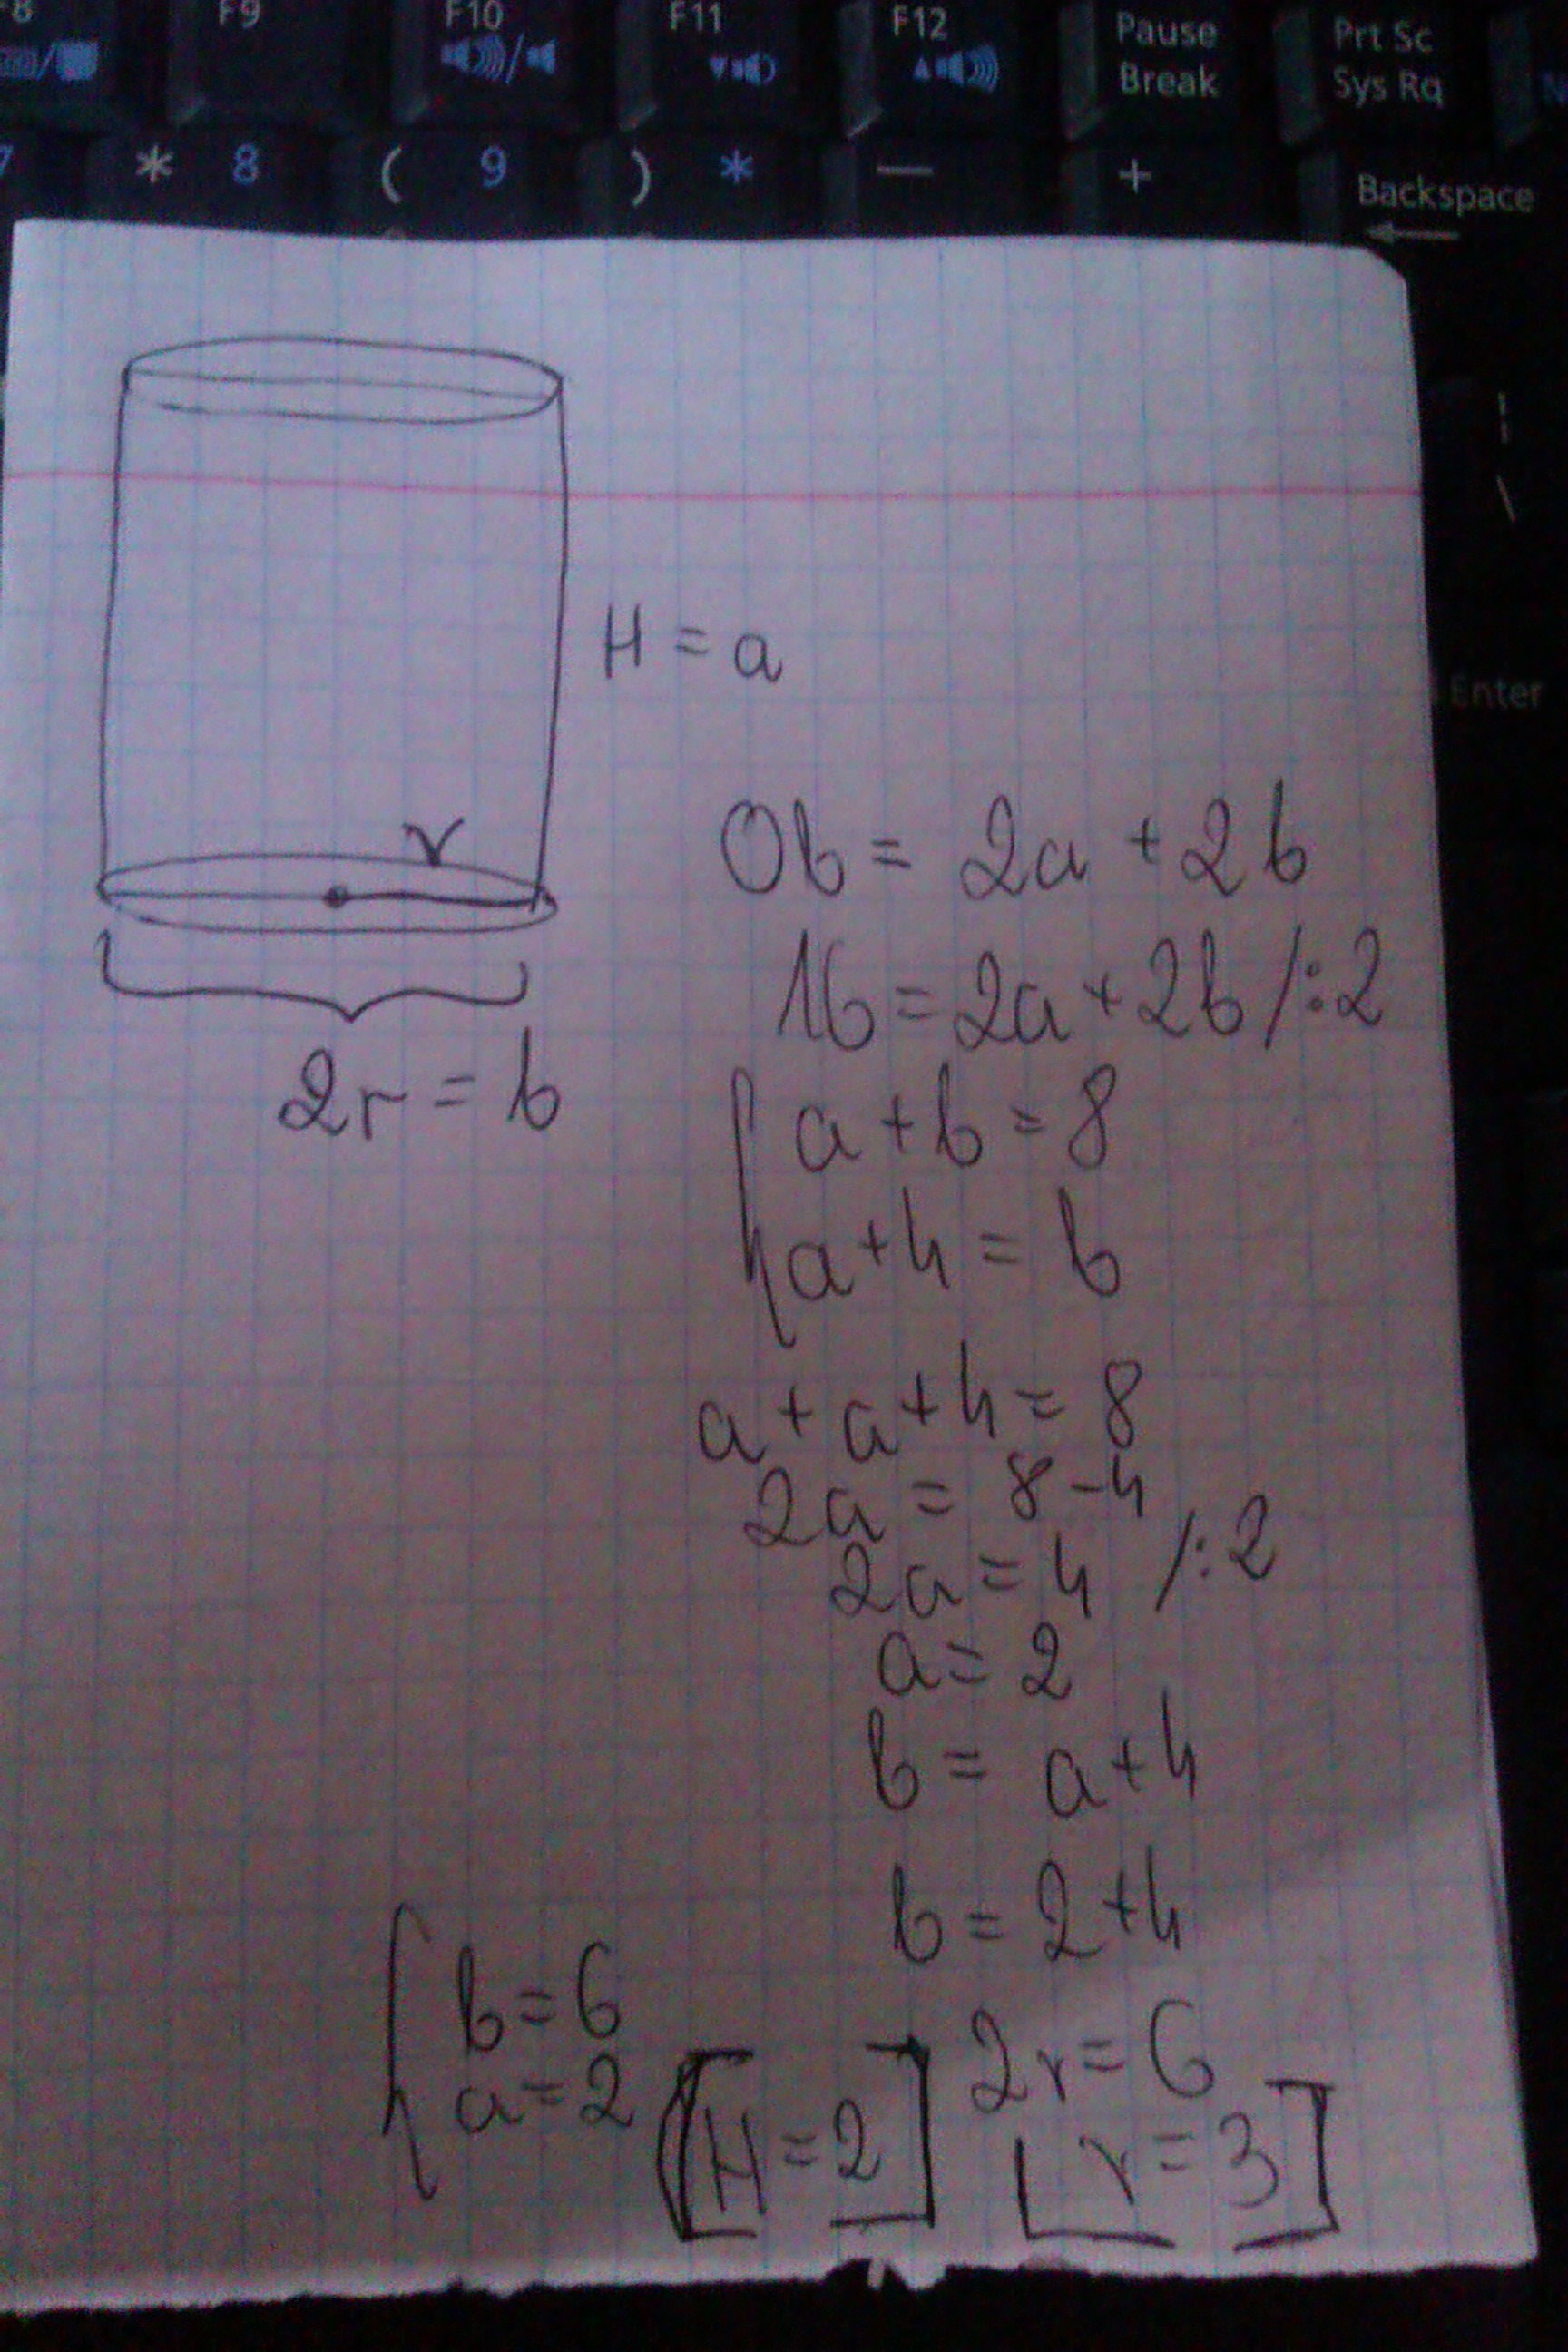 F8 F9 F10 F11 F12 Pause Break Prt Sc Sys Rq
7 * 8 ( 9 ) * — + Backspace
Enter
\
H = a
r
2r = b
Ob = 2a + 2b
16 = 2a + 2b /:2
a + b = 8
a + 4 = b
a + a + 4 = 8
2a = 8 - 4
2a = 4 /:2
a = 2
b = a + 4
b = 2 + 4
b = 6
a = 2
H = 2
2r = 6
r = 3